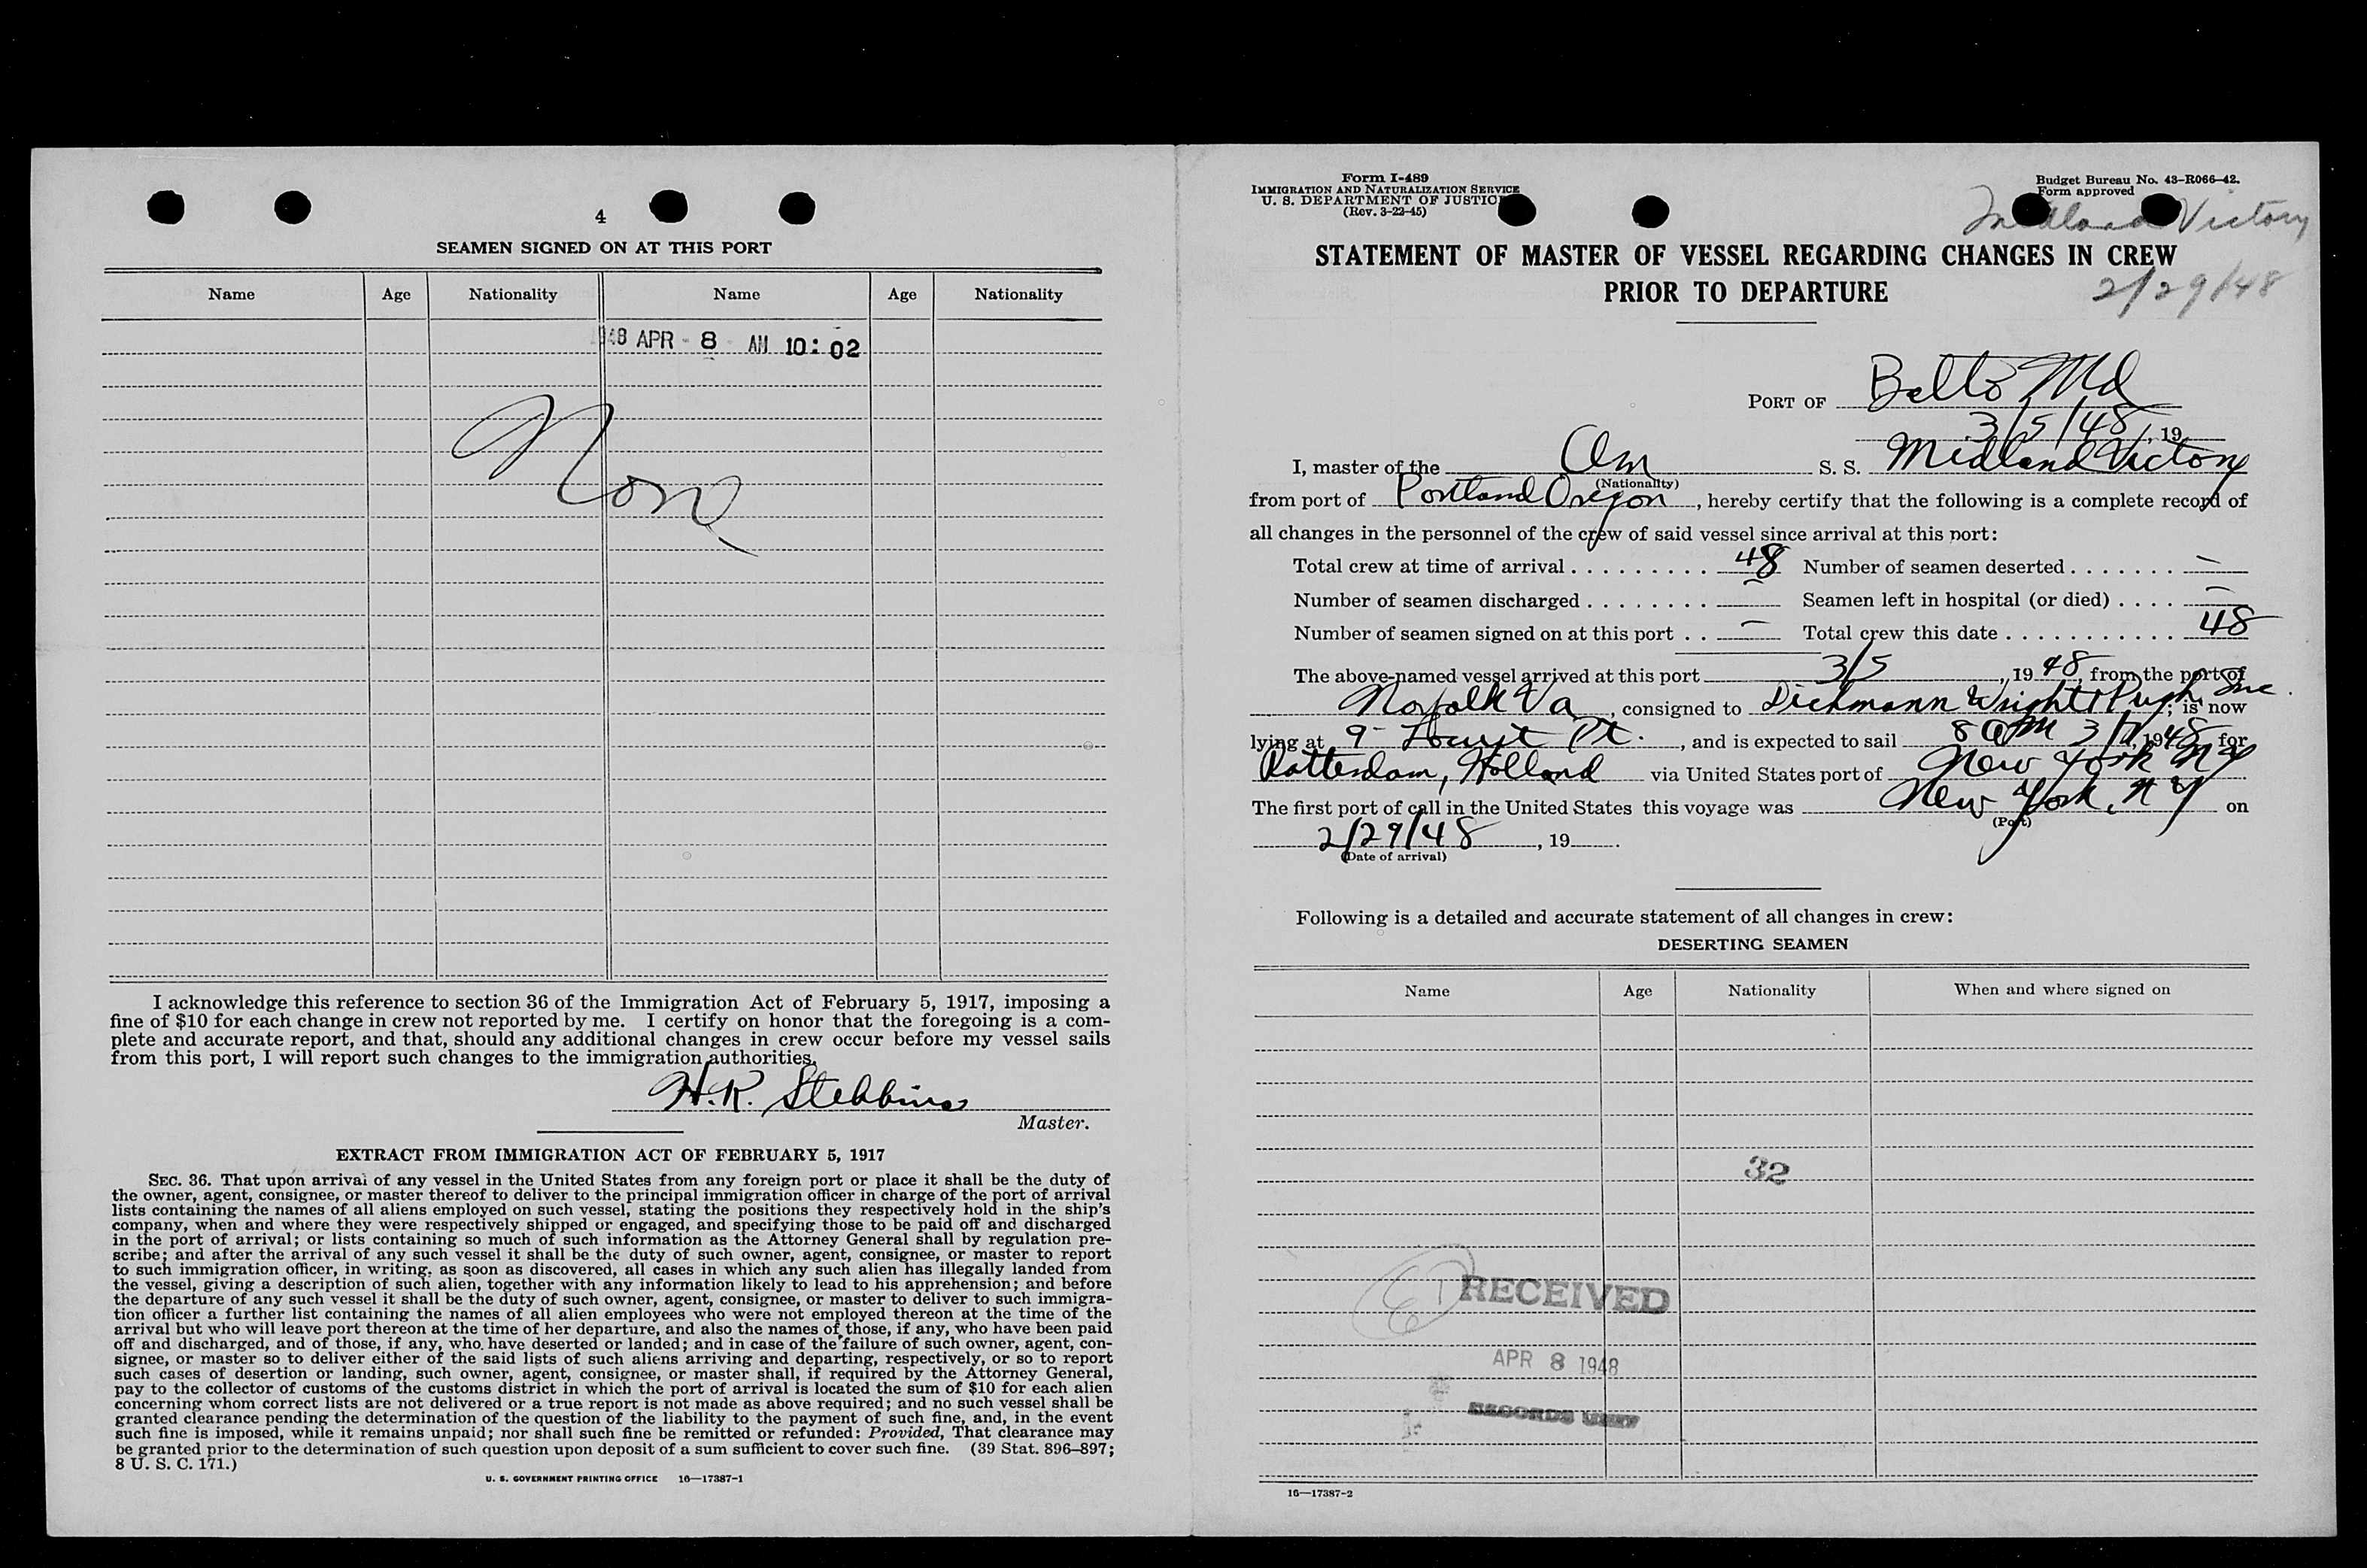 4
SEAMEN SIGNED ON AT THIS PORT
Name Age Nationality Name Age Nationality
1948 APR - 8 AM 10:02
None
I acknowledge this reference to section 36 of the Immigration Act of February 5, 1917, imposing a
fine of $10 for each change in crew not reported by me. I certify on honor that the foregoing is a com-
plete and accurate report, and that, should any additional changes in crew occur before my vessel sails
from this port, I will report such changes to the immigration authorities.
H.R. Stebbins
Master.
EXTRACT FROM IMMIGRATION ACT OF FEBRUARY 5, 1917
SEC. 36. That upon arrival of any vessel in the United States from any foreign port or place it shall be the duty of
the owner, agent, consignee, or master thereof to deliver to the principal immigration officer in charge of the port of arrival
lists containing the names of all aliens employed on such vessel, stating the positions they respectively hold in the ship's
company, when and where they were respectively shipped or engaged, and specifying those to be paid off and discharged
in the port of arrival; or lists containing so much of such information as the Attorney General shall by regulation pre-
scribe; and after the arrival of any such vessel it shall be the duty of such owner, agent, consignee, or master to report
to such immigration officer, in writing, as soon as discovered, all cases in which any such alien has illegally landed from
the vessel, giving a description of such alien, together with any information likely to lead to his apprehension; and before
the departure of any such vessel it shall be the duty of such owner, agent, consignee, or master to deliver to such immigra-
tion officer a further list containing the names of all alien employees who were not employed thereon at the time of the
arrival but who will leave port thereon at the time of her departure, and also the names of those, if any, who have been paid
off and discharged, and of those, if any, who have deserted or landed; and in case of the failure of such owner, agent, con-
signee, or master so to deliver either of the said lists of such aliens arriving and departing, respectively, or so to report
such cases of desertion or landing, such owner, agent, consignee, or master shall, if required by the Attorney General,
pay to the collector of customs of the customs district in which the port of arrival is located the sum of $10 for each alien
concerning whom correct lists are not delivered or a true report is not made as above required; and no such vessel shall be
granted clearance pending the determination of the question of the liability to the payment of such fine, and, in the event
such fine is imposed, while it remains unpaid; nor shall such fine be remitted or refunded: Provided, That clearance may
be granted prior to the determination of such question upon deposit of a sum sufficient to cover such fine. (39 Stat. 896–897;
8 U. S. C. 171.)
U. S. GOVERNMENT PRINTING OFFICE 16—17387-1
Form I-489
IMMIGRATION AND NATURALIZATION SERVICE
U. S. DEPARTMENT OF JUSTICE
(Rev. 3-22-45)
Budget Bureau No. 43-R066-42.
Form approved
Midland Victory
STATEMENT OF MASTER OF VESSEL REGARDING CHANGES IN CREW
PRIOR TO DEPARTURE
2/29/48
PORT OF Balto Md
3/5/48, 19
I, master of the Am S. S. Midland Victory
(Nationality)
from port of Portland Oregon, hereby certify that the following is a complete record of
all changes in the personnel of the crew of said vessel since arrival at this port:
Total crew at time of arrival . . . . . . . . . . 48 Number of seamen deserted . . . . . . . —
Number of seamen discharged . . . . . . . . — Seamen left in hospital (or died) . . . . —
Number of seamen signed on at this port . . — Total crew this date . . . . . . . . . . . . 48
The above-named vessel arrived at this port 3/5, 1948, from the port of
Norfolk Va, consigned to Dichmann Wright & Pugh, Inc.; is now
lying at 9- Locust Pt., and is expected to sail 8 AM 3/7, 1948 for
Rotterdam, Holland via United States port of New York NY
The first port of call in the United States this voyage was New York, NY on
(Port)
2/29/48, 19.
(Date of arrival)
Following is a detailed and accurate statement of all changes in crew:
DESERTING SEAMEN
Name Age Nationality When and where signed on
32
RECEIVED
APR 8 1948
RECORDS UNIT
16—17387-2